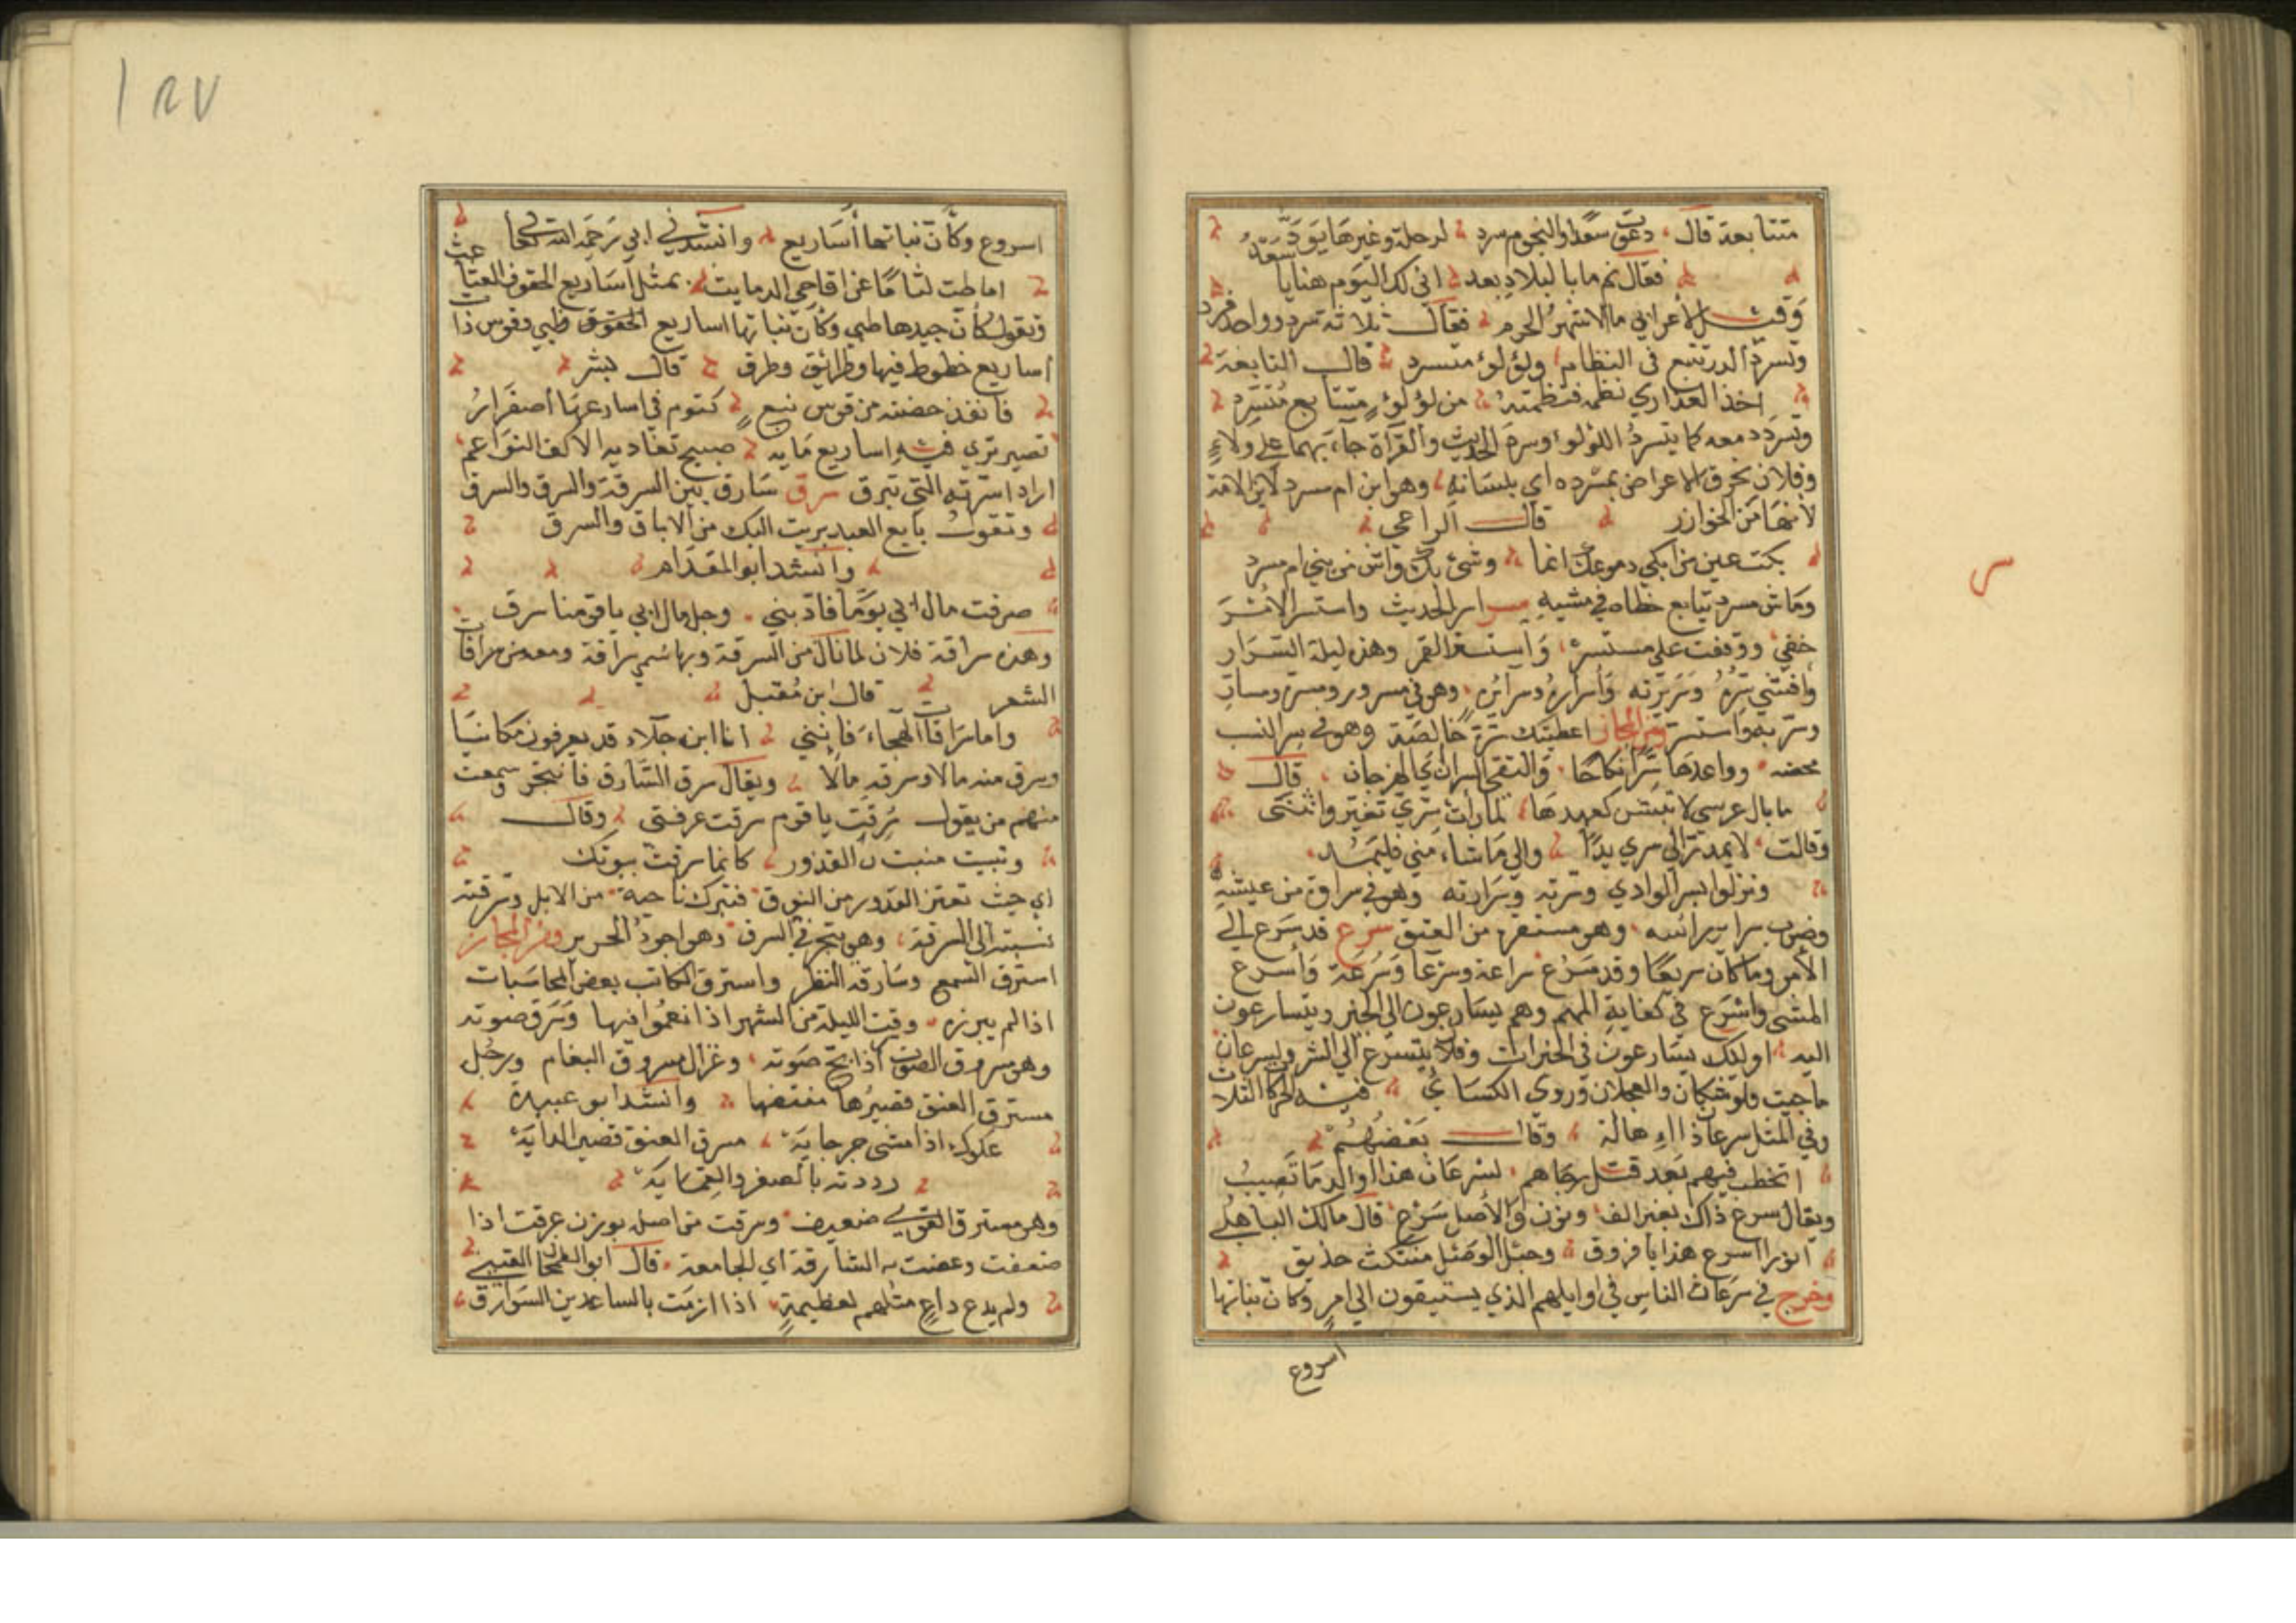 متتابعة قال دعوت سعدا والنجوم سرد لرحلة وغيرها يتودد
فقال نم ما بالبلاد بعد انى لك اليوم هنايا
وقيل لأعرابي ما الاشهر الحرم فقال ثلاثة سرد وواحد فرد
وتسرد الدر تتبع في النظام ولؤلؤ متسرد قال النابغة
اخذ العذاري نظمه فنظمته من لؤلؤ متتابع متسرد
وتسرد دمعه كما يتسرد اللؤلؤ وسرد الحديث والقرآة جاء بهما على ولاء
وفلان يخرق الاعراض بمسرده اي بلسانه وهو ابن ام مسرد لابن الامة
لانها من الخوارز قال الراعي
بكت عين من ابكي دموعك انما وشى بك واش من بني ام مسرد
وماش مسرد يتابع خطاه في مشيه سرر اسر الحديث واستسر الامر
خفي ووقفت على مستسره واستسر القمر وهذه ليلة السرار
وافشى سره وسريرته وأسراره وسرائره وهو في سرور ومسرة ومسار
وسر به واستسر ومن المجاز اعطيتك سره خالصة وهو في سر النسب
محضه وواعدها سرا نكاحا والتقى السران اي الفرجان قال
ما بال عرسي لا تبتش كعهدها لما رأت سري تغير وانثنى
وقالت لا يمدن الى سري يدا والى ما شاء مني فليمد
ونزلوا بسر الوادي وسرته وسرارته وهو في سراوة من عيشه
وضرب سرير رائسه وهو مستقره من العنق سرع قد سرع الى
الأمر وما كان سريعا وقد سرع سراعة وسرعا وسرعة وأسرع
المشى واسرع في كفاية المهم وهم يسارعون الى الخير ويتسارعون
اليه اوليك يسارعون في الخيرات وفلان يتسرع الي الشر ولسرعان
ما جيت ولوشكان والعجلان وروى الكساي فيه الحركات الثلاث
وفي المثل سرعان ذا اهالة وقال بعضهم
اتخطب فيهم بعد قتل رجاهم لسرعان هذا والدما تصيب
ويقال سرع ذاك بغير الف ونون والاصل سرع قال مالك الباهلي
انورا اسرع هذا يا فروق وحبل الوصل منتكث حذيق
وخرج في سرعان الناس في اوايلهم الذي يستبقون الى امر وكان بناتها
اسروع
س
١٨٧
اسروع وكأن بناتها أساريع وانشدني ابي رحمه الله تعالى
اماطت لثاما عن اقاحي الدمايث بمثل أساريع الحقوف العثاعث
وتقول كأن جيدها ظبي وكأن بناتها اساريع الحقوق ظبي وقوس ذات
اساريع خطوط فيها وطرائق وطرق قال بشر
فانفذ حضنيه من قوس نبع كتوم في اسارعها اصفرار
تصير تري فيه اساريع مايه صبيح تغاديه الاكف النواعم
اراد استرته التي تبرق سرق سارق بين السرقة والسرق والسرق
وتقول بايع العبد بريت اليك من الاباق والسرق
وانشد ابو المقدام
صرفت مال ابي يوما فادبني وجل مال ابي يا قومنا سرق
وهذه سراقة فلان لما نال من السرقة وبها سمي سراقة ومعه من سراقات
الشعر قال ابن مقبل
واما سراقات الهجاء فانني انا ابن جلاء قد يعرفون مكانيا
وسرق منه مالا وسرقه مالا ويقال سرق السارق فانتحر وسمعت
منهم من يقول سرقت يا قوم سرقت عرفتي وقال
وتبيت منبت القذور كانما سرقت بيوتك
اي حيث تعتز القدور من النوق فتبرك ناحية من الابل وسرقته
نسبته الى السرقة وهو يتجر في السرق وهو اجود الحرير ومن المجاز
استرق السمع وسارقه النظر واسترق الكاتب بعض المحاسبات
اذا لم يبرزه وقيت الليلة من الشهر اذا نعموا فيها وسرق صوته
وهو مسروق الصوت اذا بح صوته وغزال مسروق البغام ورجل
مسترق العنق قصيرها مقتضها وانشد ابو عبيدة
عكوك اذا مشى جرجايه مسرق العنق قصير الدايه
رددته بالصغر والقمايه
وهو مسترق القوي ضعيف وسرقت مفاصله بوزن عرقت اذا
ضعفت وعضت به السارقة اي الجامعة قال ابو الطمحان القيني
ولم يدع داع مثلهم لعظيمة اذا ازمت بالساعدين السوارق